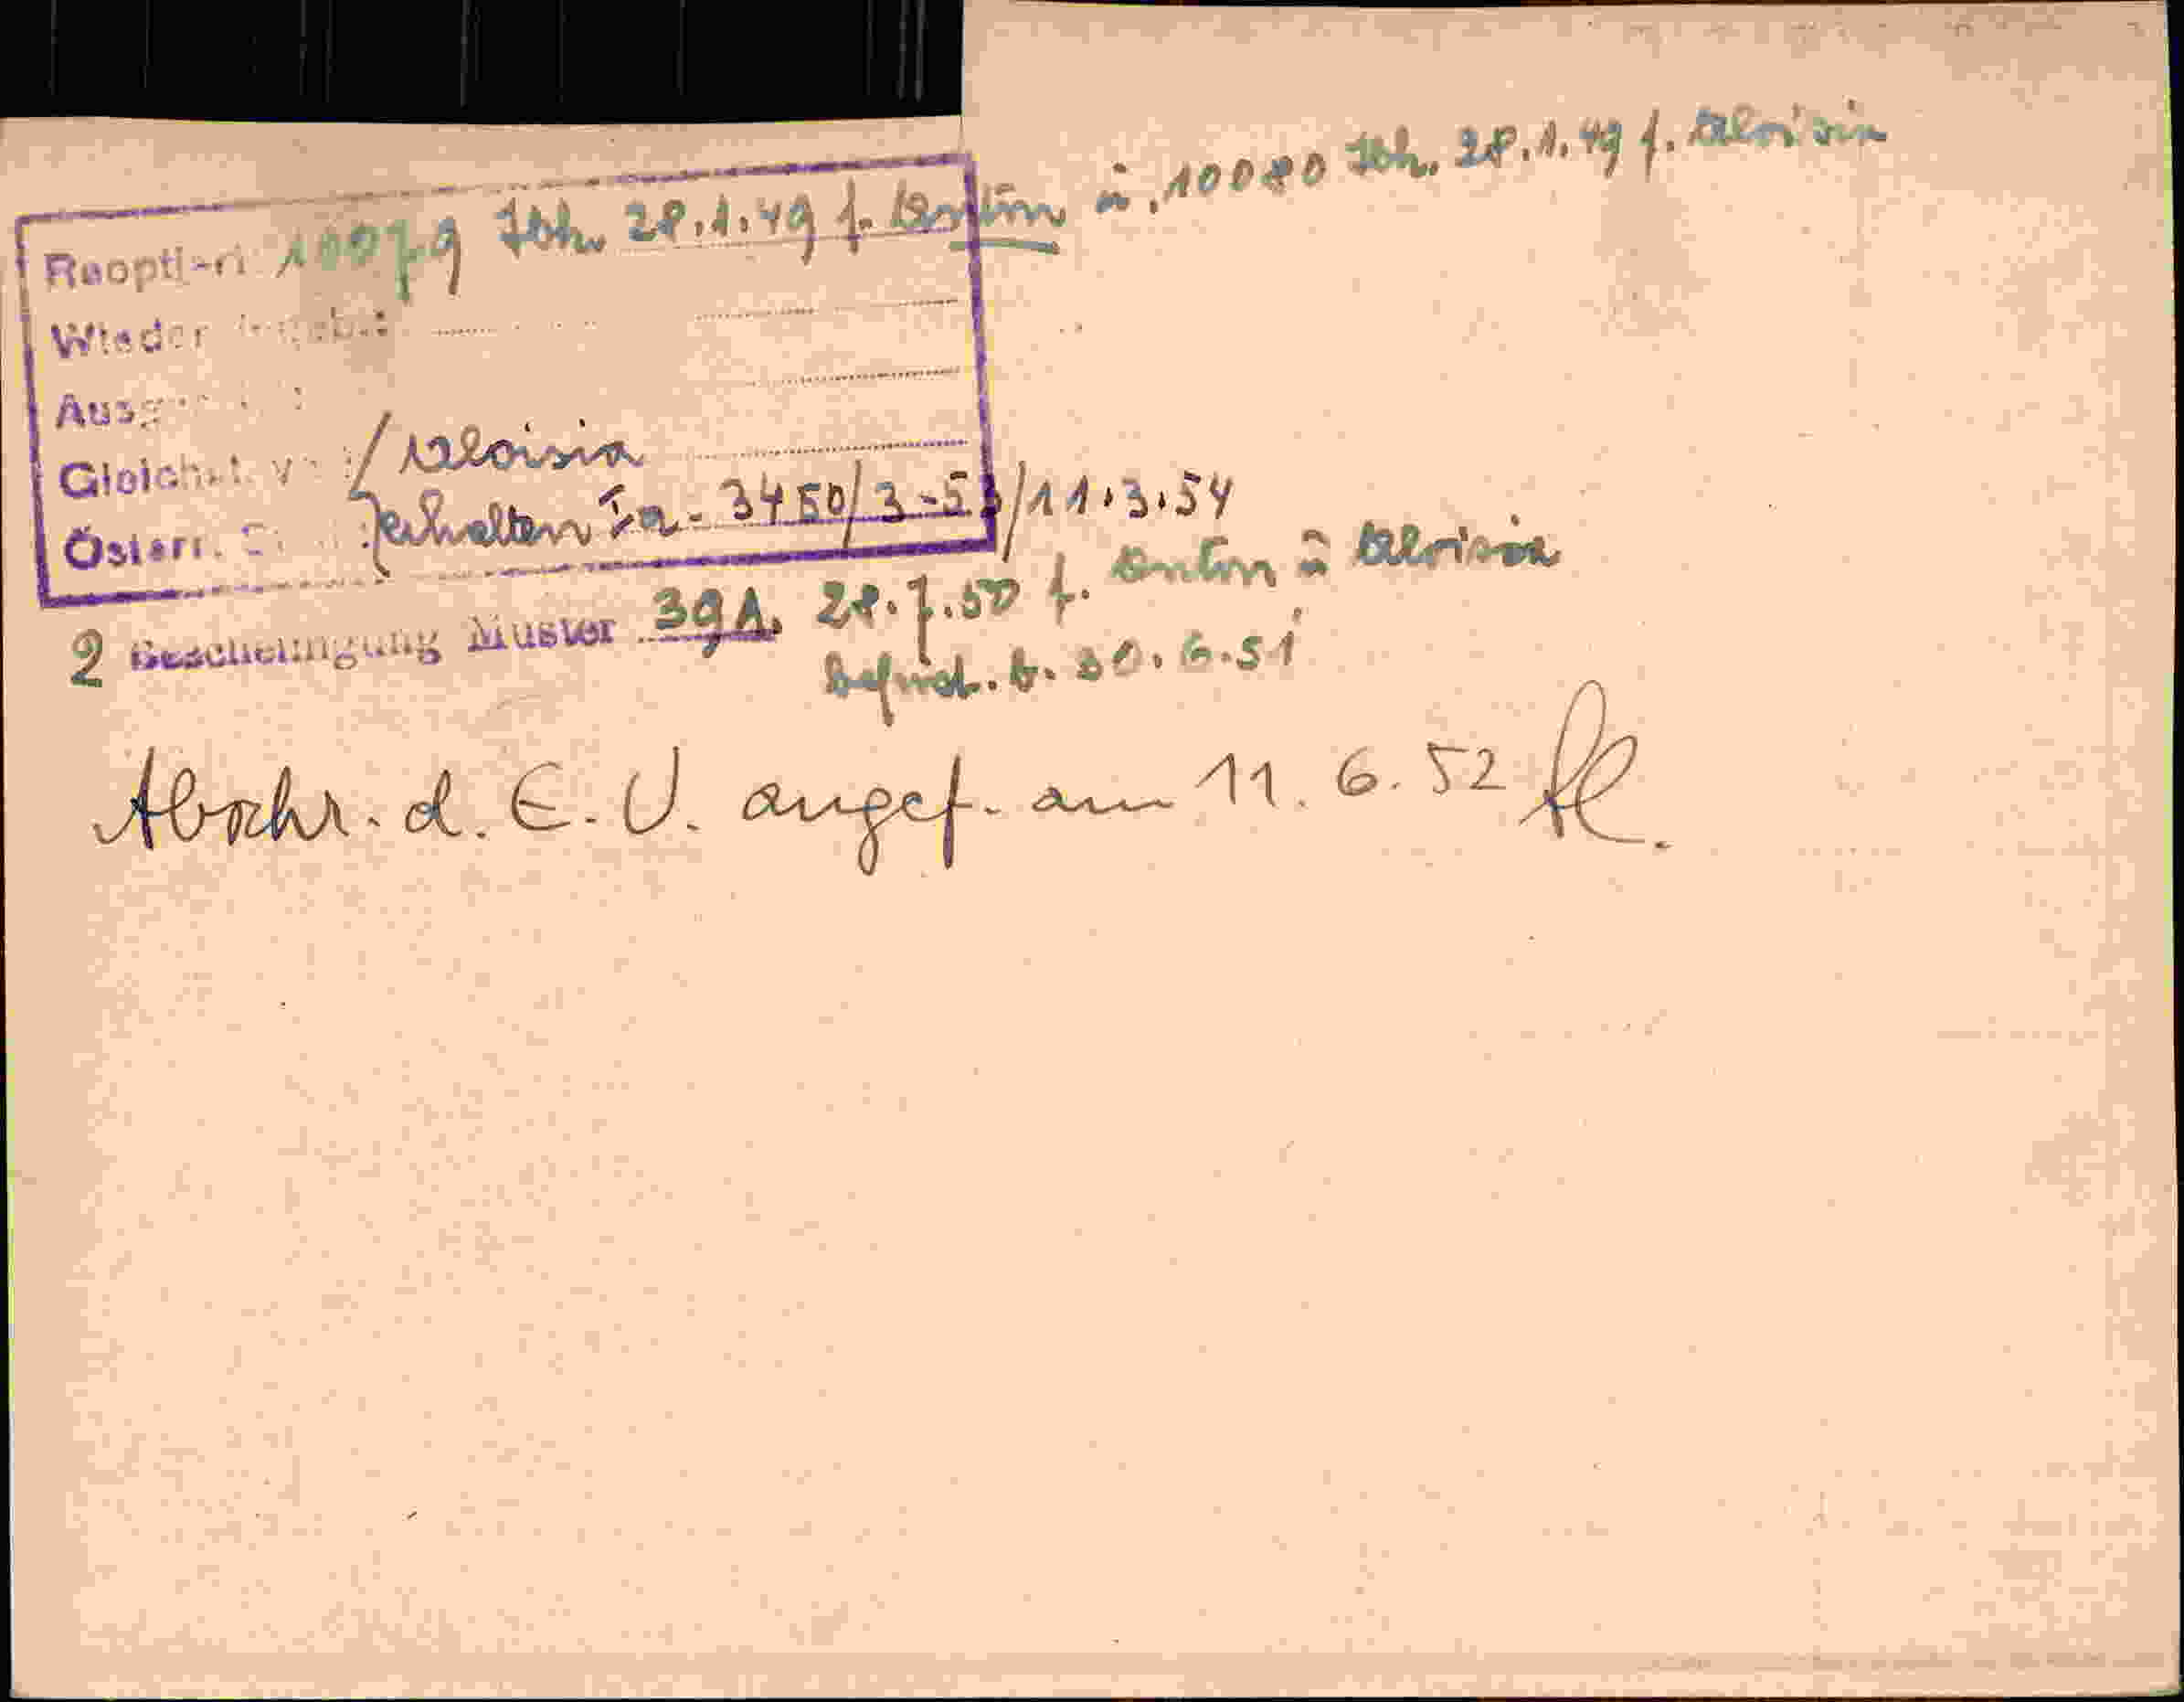 Reoptiert 10079 Ibk. 28.1.49 f. Anton u. 10080 Ibk. 28.1.49 f. Aloisia
Wieder
Ausg
Gleichst. v. / Aloisia
Österr. erhalten Ia - 3450/3-53/11.3.54
2 Bescheinigung Muster 39A. 28.7.50 f. Anton u Aloisia
befrist. b. 30.6.51
Abschr. d. E. U. angef. am 11. 6. 52